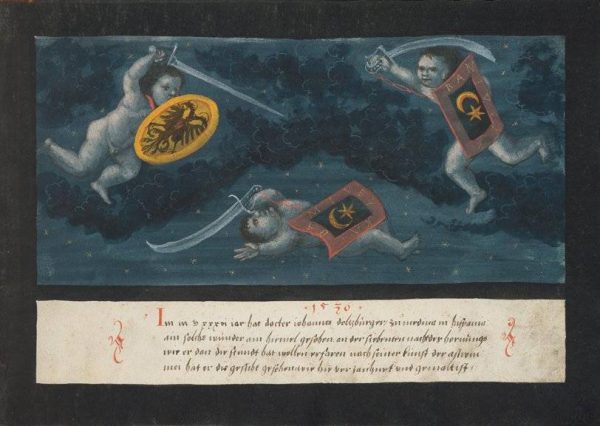 iar hat docter iohannes dolzbürger zu medina in hispania
am solche wunder am himel gesehen an der siebenten nacht des hornungs
wie er dan die stundt hat wollen erfaren nach seiner kunst der astrono
mei hat er dis gesicht gesehen wie hie ver zaichnet vnd gemalt ist